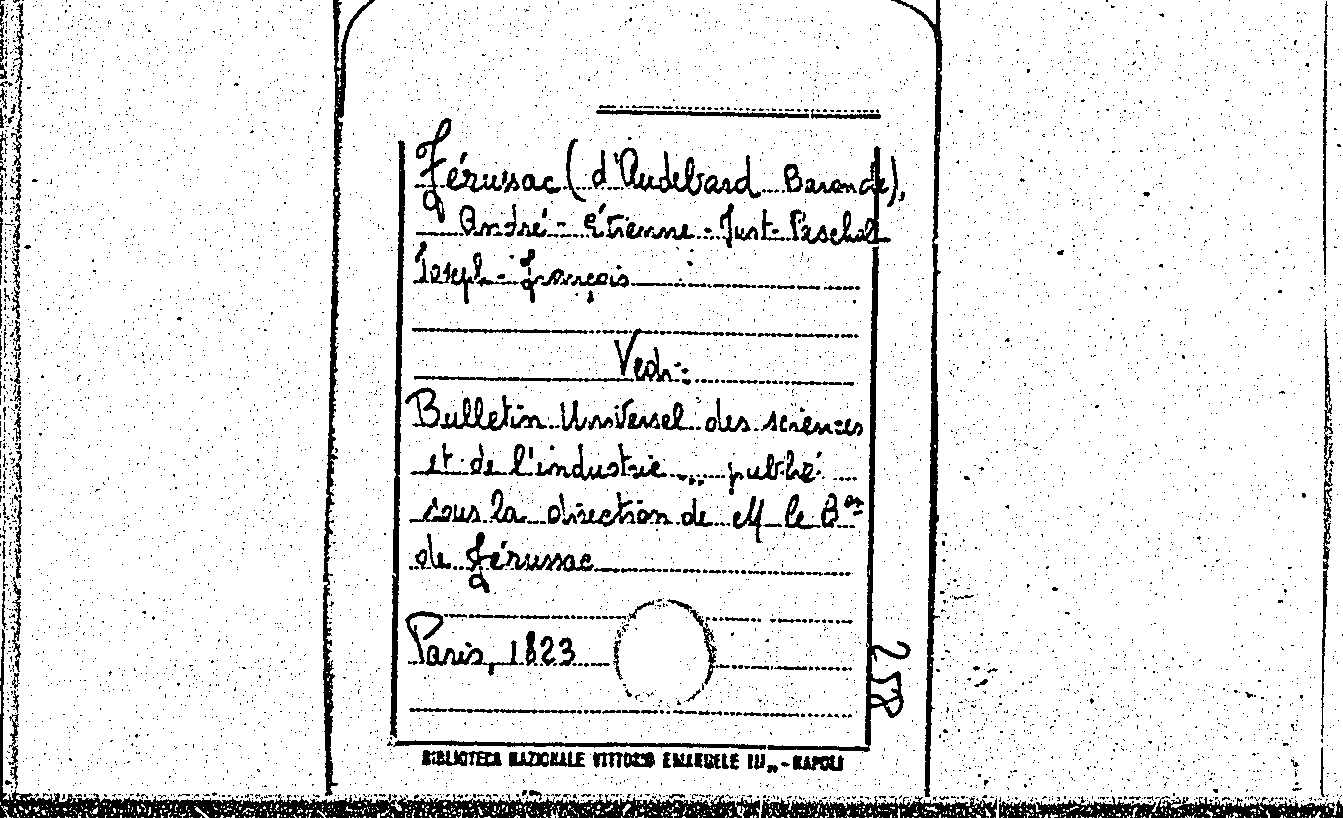 Férussac (d'Audebard Baron de),
André-Étienne-Just-Paschal
Joseph-François
Vedi:
Bulletin Universel des sciences
et de l'industrie ... publié
sous la direction de M le Bon
de Férussac
Paris, 1823
258
BIBLIOTECA NAZIONALE VITTORIO EMANUELE III„-NAPOLI